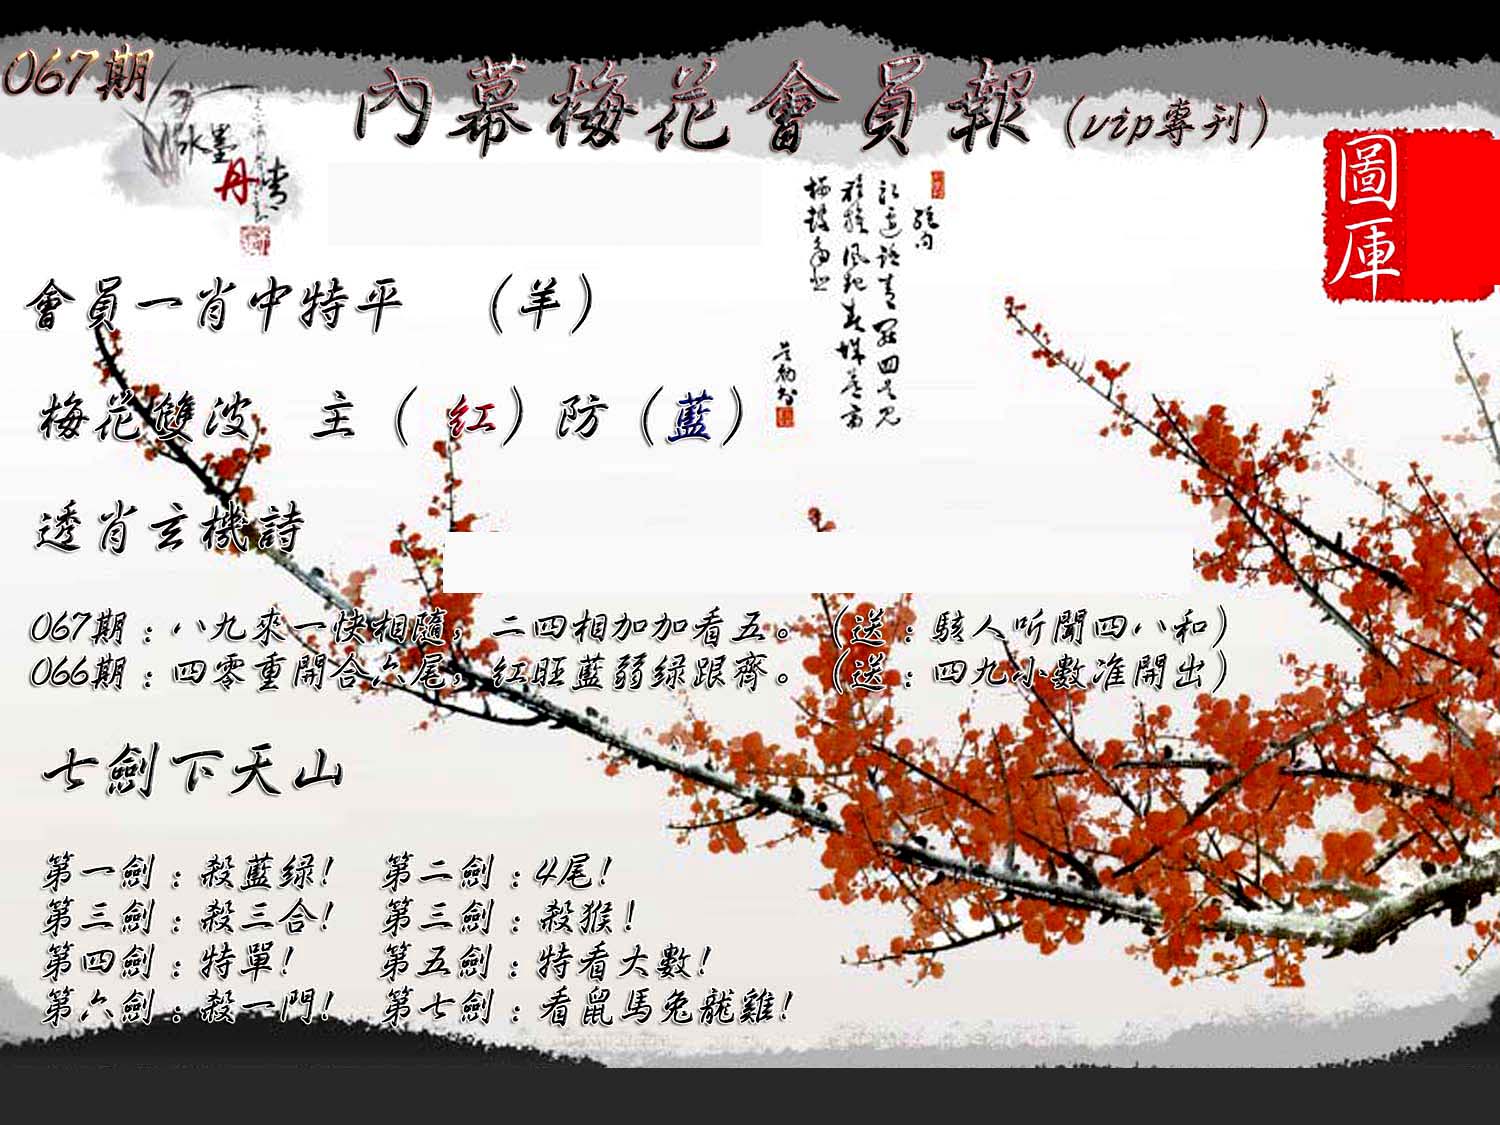 067期
內幕梅花會員報(vip專刊)
水墨
丹青
圖庫
會員一肖中特平 (羊)
梅花雙波 主(紅)防(藍)
透肖玄機詩
067期:八九來一快相隨，二四相加加看五。(送:駭人听聞四八和)
066期:四零重開合六尾，红旺藍弱绿跟齊。(送:四九小數准開出)
七劍下天山
第一劍:殺藍绿! 第二劍:4尾!
第三劍:殺三合! 第三劍:殺猴!
第四劍:特單! 第五劍:特看大數!
第六劍:殺一門! 第七劍:看鼠馬兔龍雞!